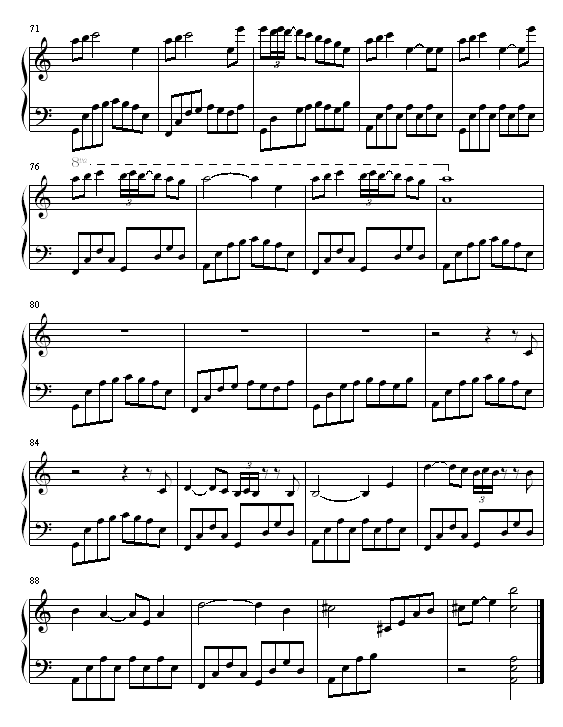 71
3
3
76
8va
3
3
80
84
3
3
88